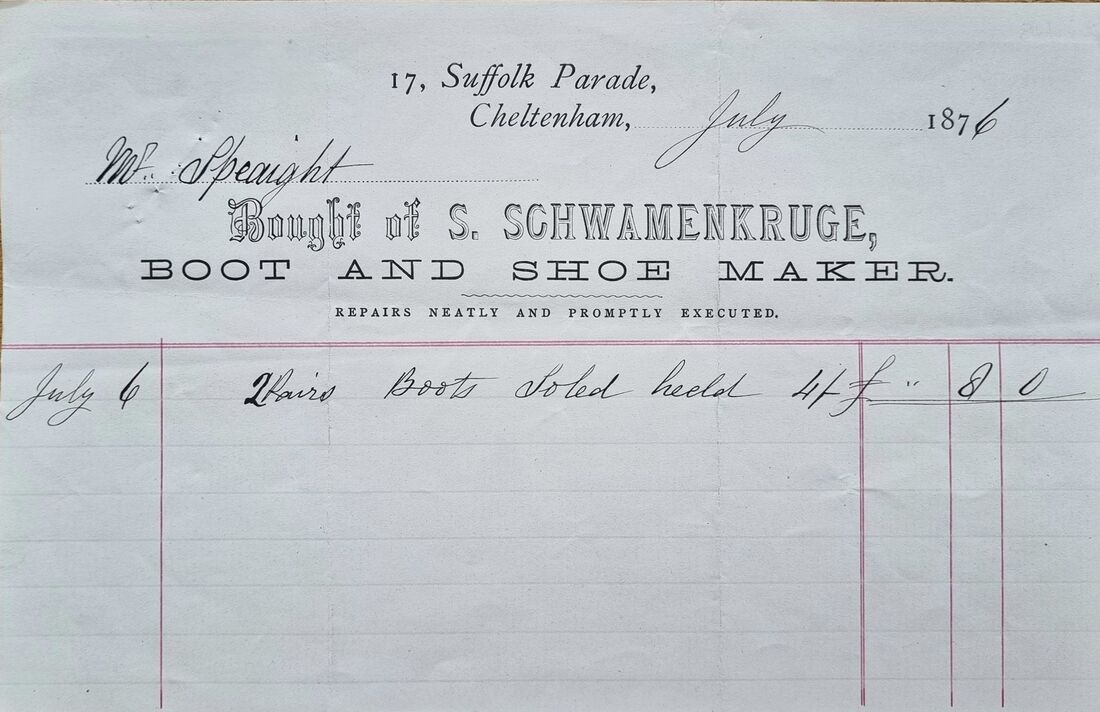 17, Suffolk Parade,
Cheltenham, July 1876
Mr. Speaight
Bought of S. SCHWAMENKRUGE,
BOOT AND SHOE MAKER.
REPAIRS NEATLY AND PROMPTLY EXECUTED.
July 6 2 Pairs Boots Soled heeld 4/ £ " 8 0